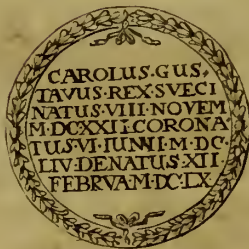 CAROLUS·GUS,
TAVUS·REX·SVECI
NATUS·VIII·NOVEM
M·DCXXII·CORONA
TUS·VI·IUNII·M·DC
LIV·DENATUS·XII
FEBRVAM·DC·LX